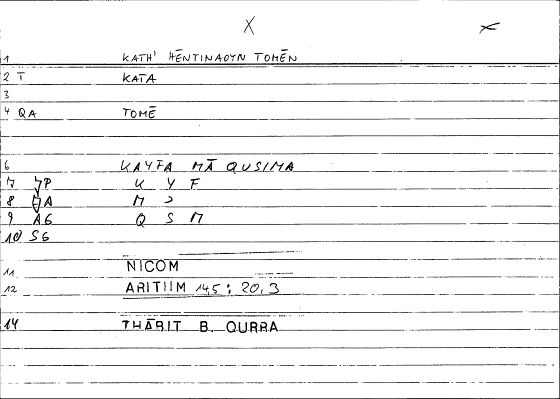 X
1 KATH' HĒNTINAOYN TOMĒN
2 T KATA
3
4 QA TOMĒ
6 KAYFA MĀ QUSIMA
7 P K Y F
8 A M
9 AG Q S M
10 SG
11 NICOM
12 ARITIIM 14,5 : 20,3
14 THĀBIT B. QURRA